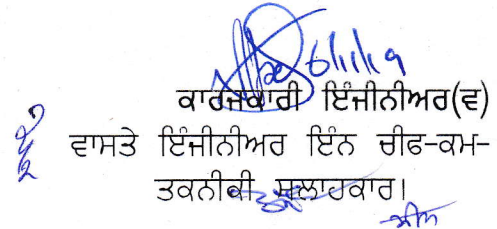 6/11/19
ਕਾਰਜਕਾਰੀ ਇੰਜੀਨੀਅਰ(ਵ)
ਵਾਸਤੇ ਇੰਜੀਨੀਅਰ ਇੰਨ ਚੀਫ-ਕਮ-
ਤਕਨੀਕੀ ਸਲਾਹਕਾਰ।